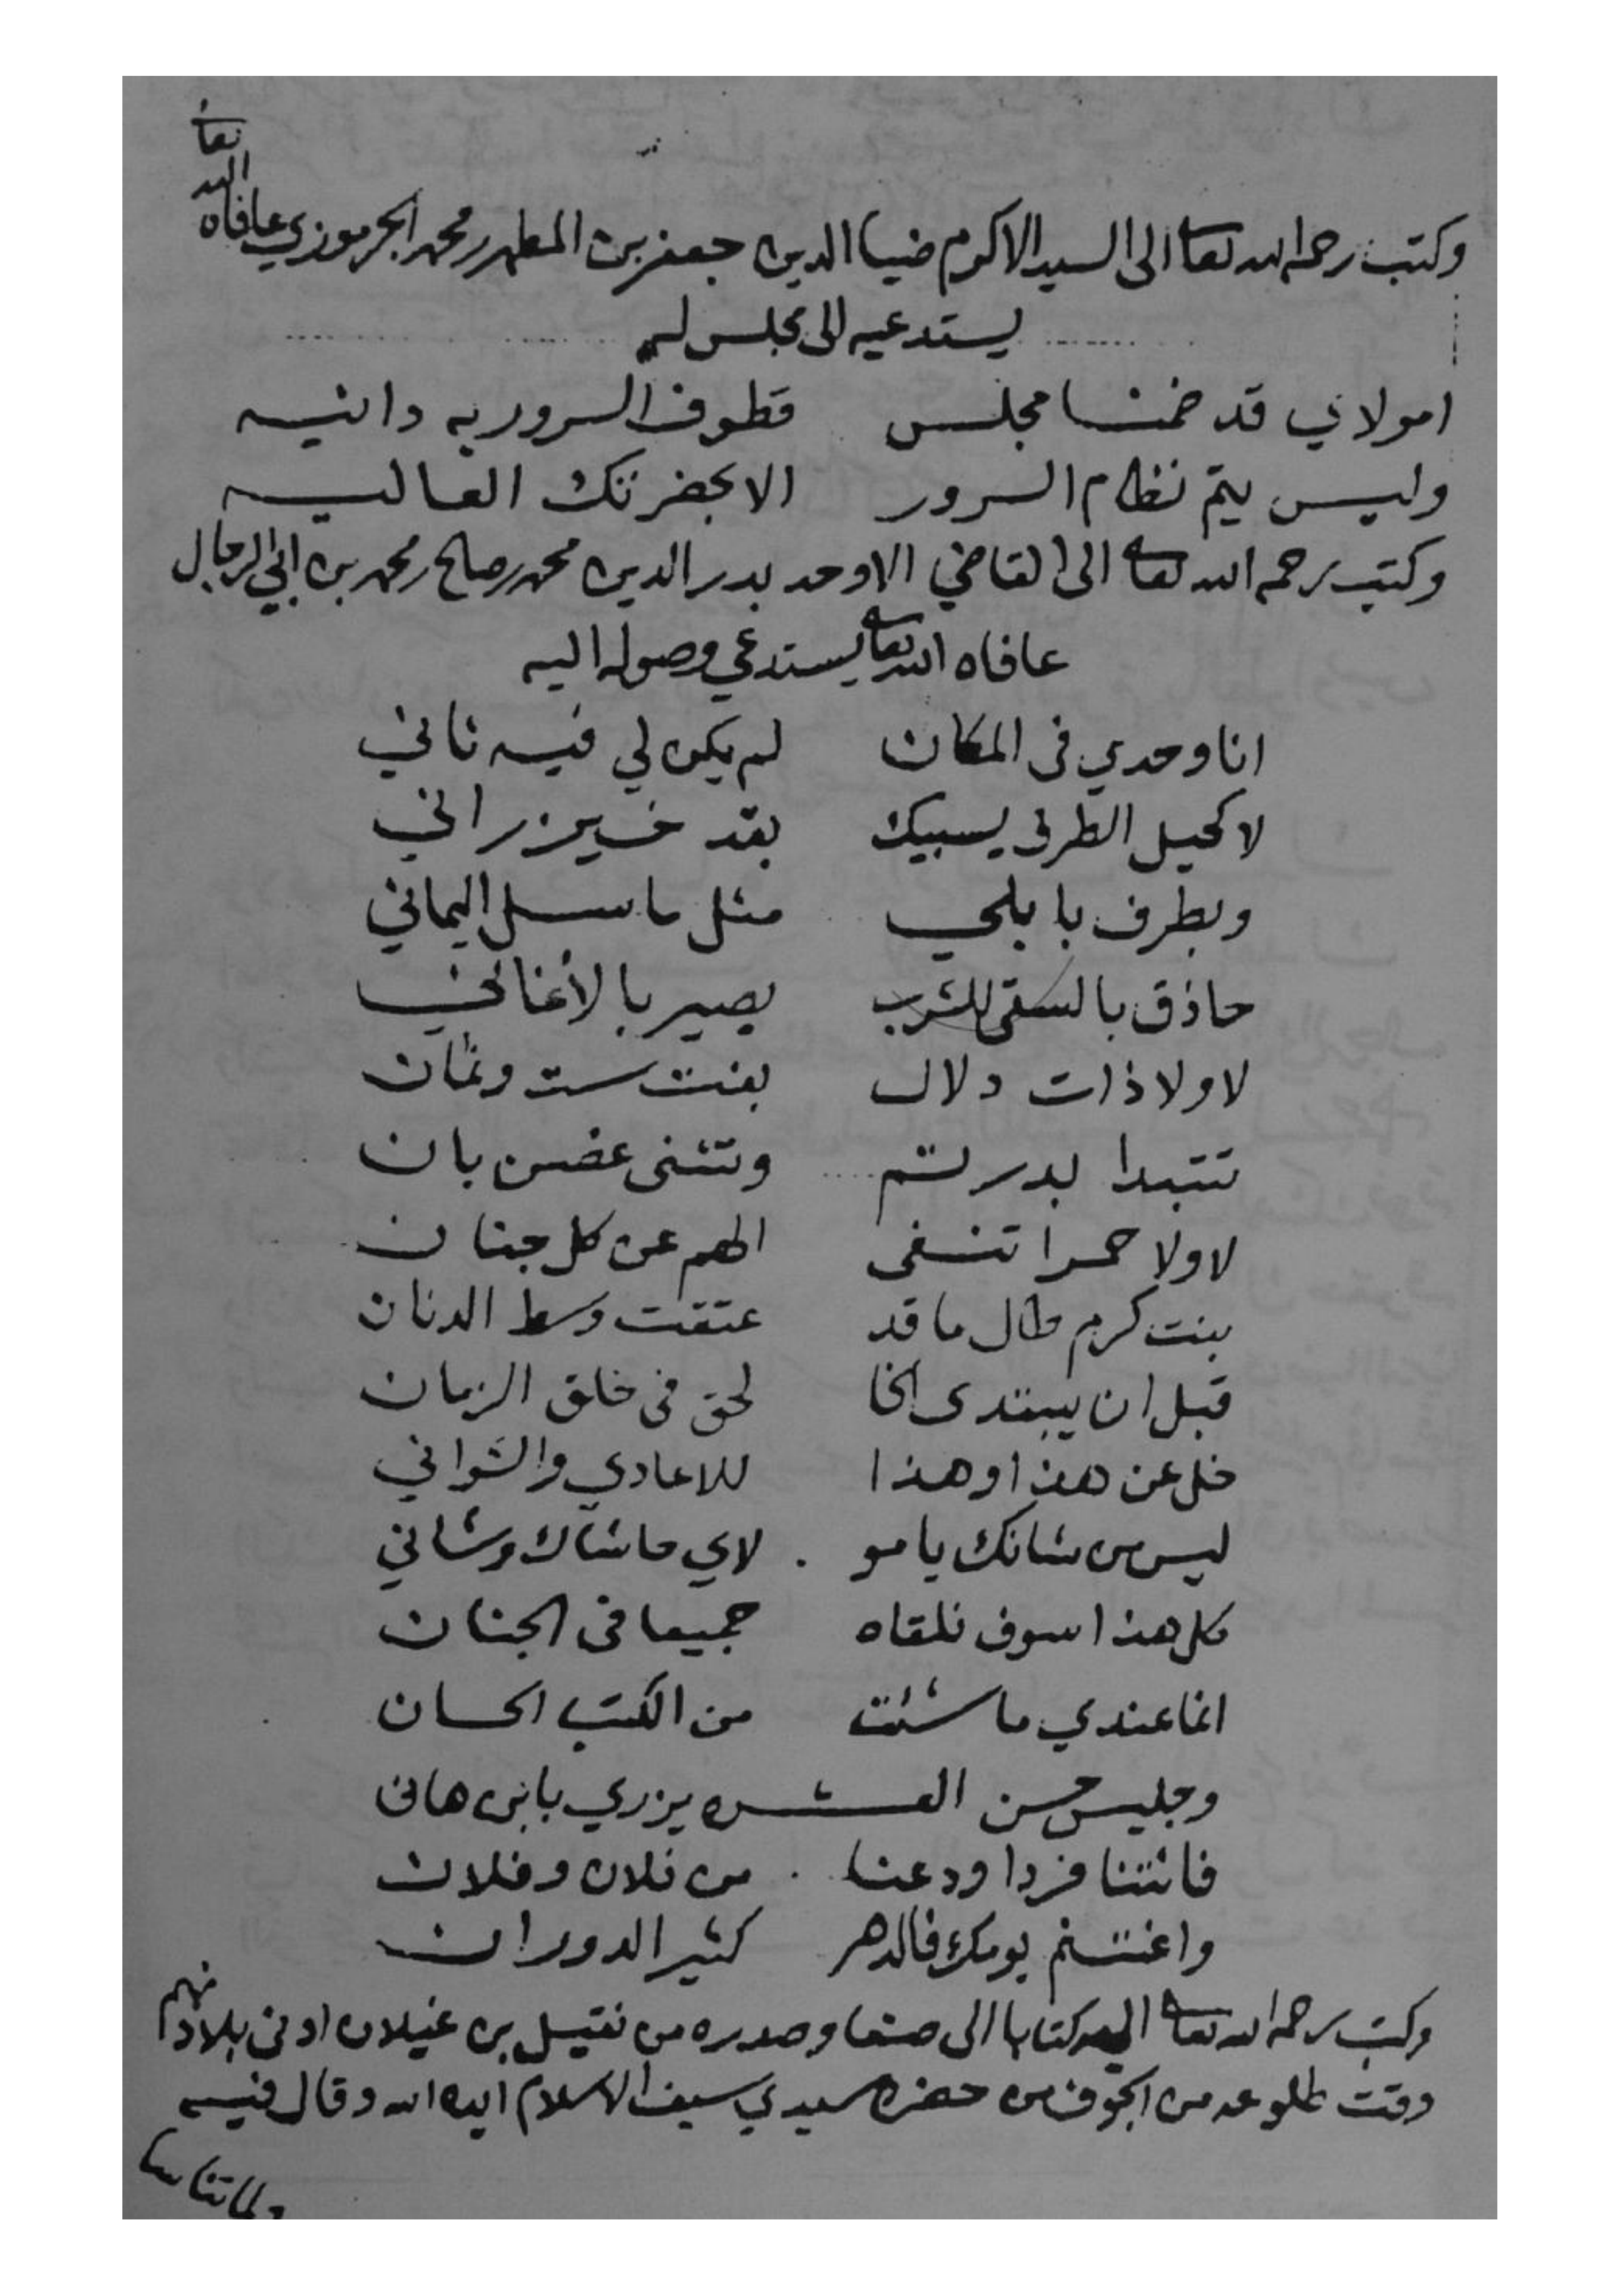 وكتب رحمه الله تعالى الى السيد الاكرم ضيا الدين جعفر بن المطهر محمد الجرموزي عافاه الله تعا
يستدعيه الى مجلس له
امولاي قد ضمنا مجلس قطوف السرور به دانيه
وليس يتم نظام السرور الا بحضرتك العاليه
وكتب رحمه الله تعالى الى القاضي الاوحد بدر الدين محمد صالح محمد بن ابي الرجال
عافاه الله تعالى يستدعي وصوله اليه
انا وحدي في المكان لم يكن لي فيه ثاني
لا كحيل الطرف يسبيك بقد خيزراني
وبطرف بابلي مثل ما سل اليماني
حاذق بالسقي للشرب بصير بالأغاني
لا ولا ذات دلال بنت ست وثمان
تتبدا بدر تم وتثنى غصن بان
لا ولا حمرا تنفى الهم عن كل جنان
بنت كرم طال ما قد عتقت وسط الدنان
قبل ان يبتدى الخا لحق في خلق الزمان
خل عن هذا وهذا للاعادي والشواني
ليس من شانك يا مو لاي حاشاك وشاني
كل هذا سوف نلقاه جميعا في الجنان
انما عندي ما شئت من الكتب الحسان
وجليس حسن العشره يزري بابن هانى
فائتنا فردا ودعنا من فلان وفلان
واغتنم يومك فالدهر كثير الدوران
وكتب رحمه الله تعالى اليه كتابا الى صنعا وصدره من نقيل بن غيلان ادنى بلاد نهم
وقت طلوعه من الجوف من حضرة سيدي سيف الاسلام ايده الله وقال فيه
ولما تنا